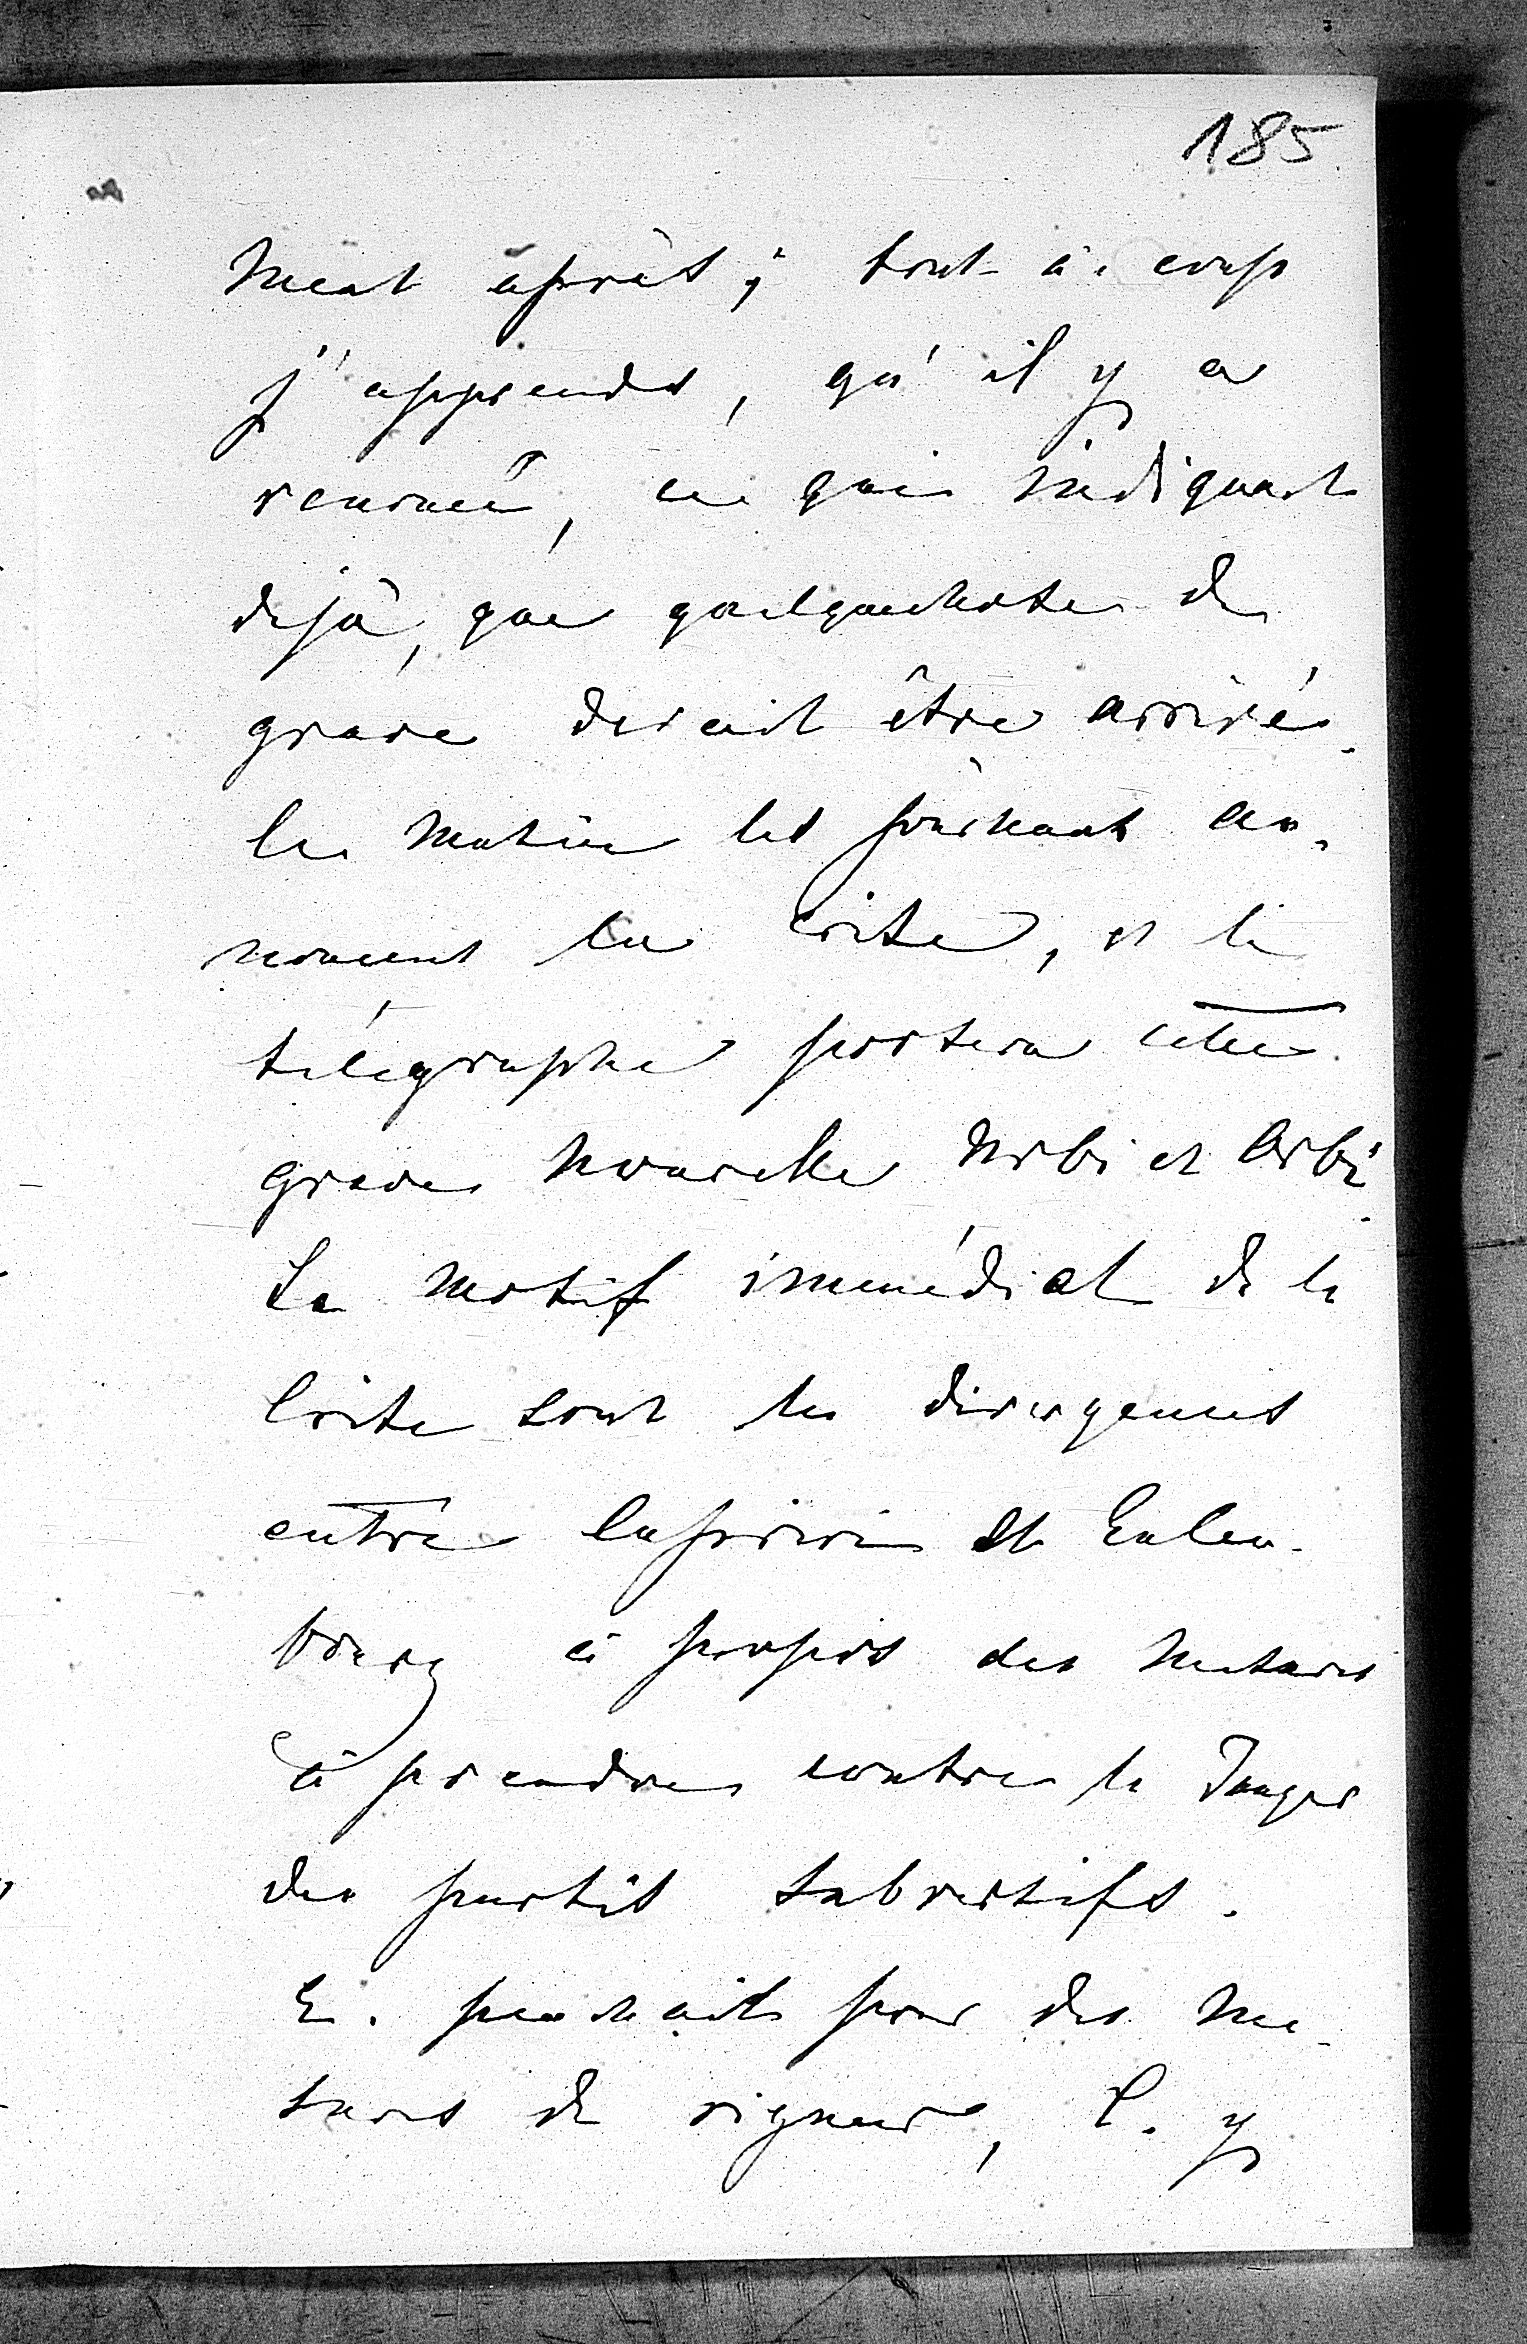 185
ment après; tout à coup
j'apprends, qu'il y a
renoncé, ce qui indiquait
dejà, que quelquechose de
grave devait être arrivé.
Ce matin les journaux an-
noncent la crise, et le
télégraphe portera cette
grave nouvelle Urbi et Orbi.
Le motif immédiat de la
crise sont les divergences
entre Caprivi et Eulen-
bourg à propos des mesures
à prendre contre le danger
des partis subversifs.
E. penchait pour des me-
sures de rigueur, C. y